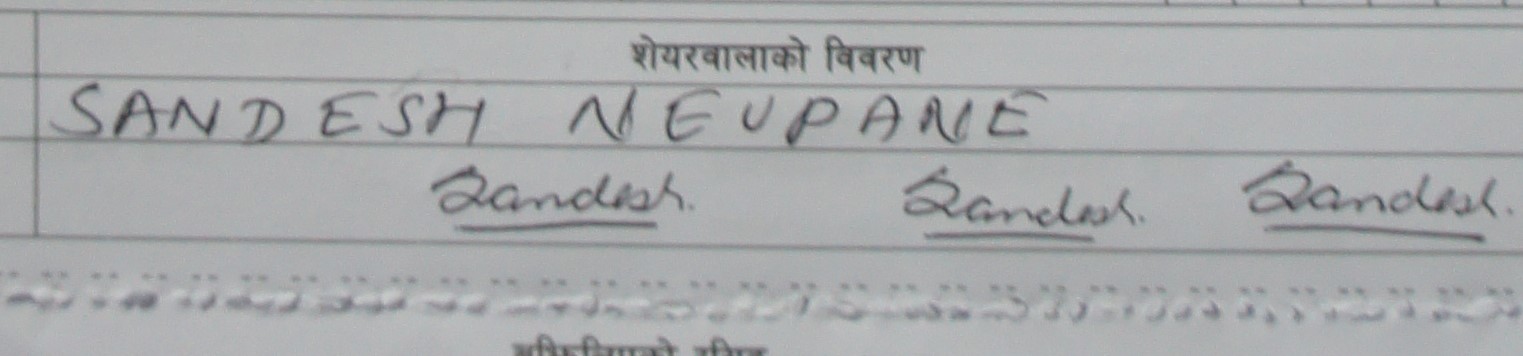 शेयरवालाको विवरण
SANDESH NEUPANE
Sandesh. Sandesh. Sandesh.